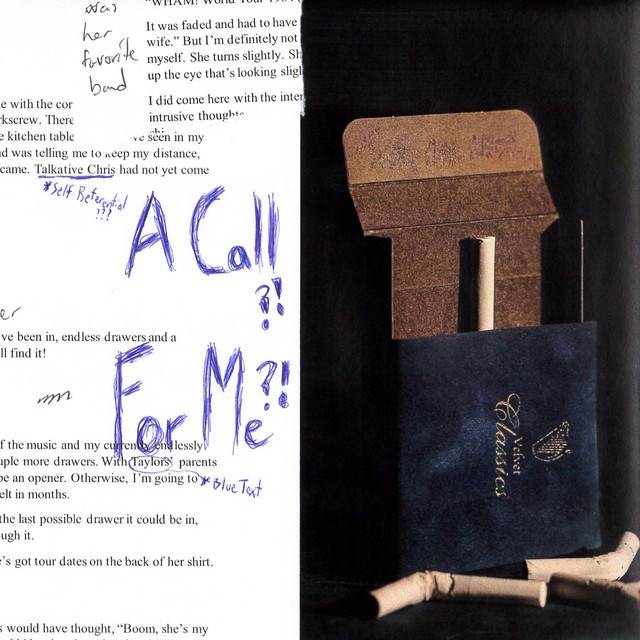 was
her
favorite
band
"WHAM! World Tour
It was faded and had to have
wife." But I'm definitely not
myself. She turns slightly. Sh
up the eye that's looking sligh
I did come here with the inter
intrusive thoughts
e with the cor
rkscrew. There
e kitchen table
ve seen in my
d was telling me to keep my distance,
came. Talkative Chris had not yet come
*Self Referential
!!!
A Call
?!
er
ve been in, endless drawers and a
ll find it!
For Me
?!
f the music and my currently endlessly
uple more drawers. With Taylors' parents
be an opener. Otherwise, I'm going to
*Blue Text
elt in months.
the last possible drawer it could be in,
ugh it.
e's got tour dates on the back of her shirt.
s would have thought, "Boom, she's my
Velvet
Classics